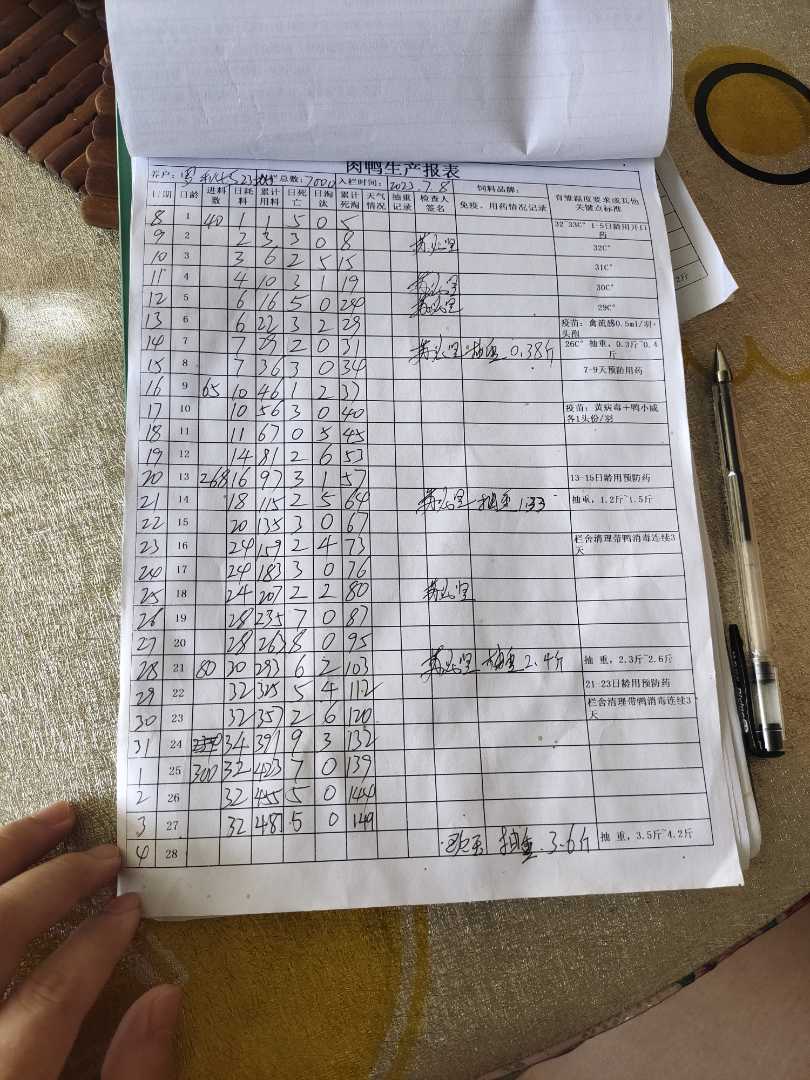 肉鸭生产报表
养户: 总数: 7000 入栏时间: 2023.7.8 饲料品牌:
日期 日龄 进料数 日耗料 累计用料 日死亡 日淘汰 累计死淘 天气情况 抽重记录 检查人签名 免疫、用药情况记录 育雏温度要求或其他关键点标准
8 1 40 1 1 5 0 5 32~33C° 1-5日龄用开口药
9 2 2 3 3 0 8 32C°
10 3 3 6 2 5 15 31C°
11 4 4 10 3 1 19 30C°
12 5 6 16 5 0 24 29C°
13 6 6 22 3 2 29 疫苗: 禽流感0.5ml/羽·头剂
14 7 7 29 2 0 31 抽重 0.38斤 26C° 抽重, 0.3斤~0.4斤
15 8 7 36 3 0 34 7-9天预防用药
16 9 65 10 46 1 2 37
17 10 10 56 3 0 40 疫苗: 黄病毒+鸭小威各1头份/羽
18 11 11 67 0 5 45
19 12 14 81 2 6 53
20 13 268 16 97 3 1 57 13-15日龄用预防药
21 14 18 115 2 5 64 抽重 1.33 抽重, 1.2斤~1.5斤
22 15 20 135 3 0 67
23 16 24 159 2 4 73 栏舍清理带鸭消毒连续3天
24 17 24 183 3 0 76
25 18 24 207 2 2 80
26 19 28 235 7 0 87
27 20 28 263 8 0 95
28 21 80 30 293 6 2 103 抽重 2.4斤 抽 重, 2.3斤~2.6斤
29 22 32 325 5 4 112 21-23日龄用预防药
30 23 32 357 2 6 120 栏舍清理带鸭消毒连续3天
31 24 34 391 9 3 132
1 25 300 32 423 7 0 139
2 26 32 455 5 0 144
3 27 32 487 5 0 149
4 28 抽重 3.6斤 抽 重, 3.5斤~4.2斤